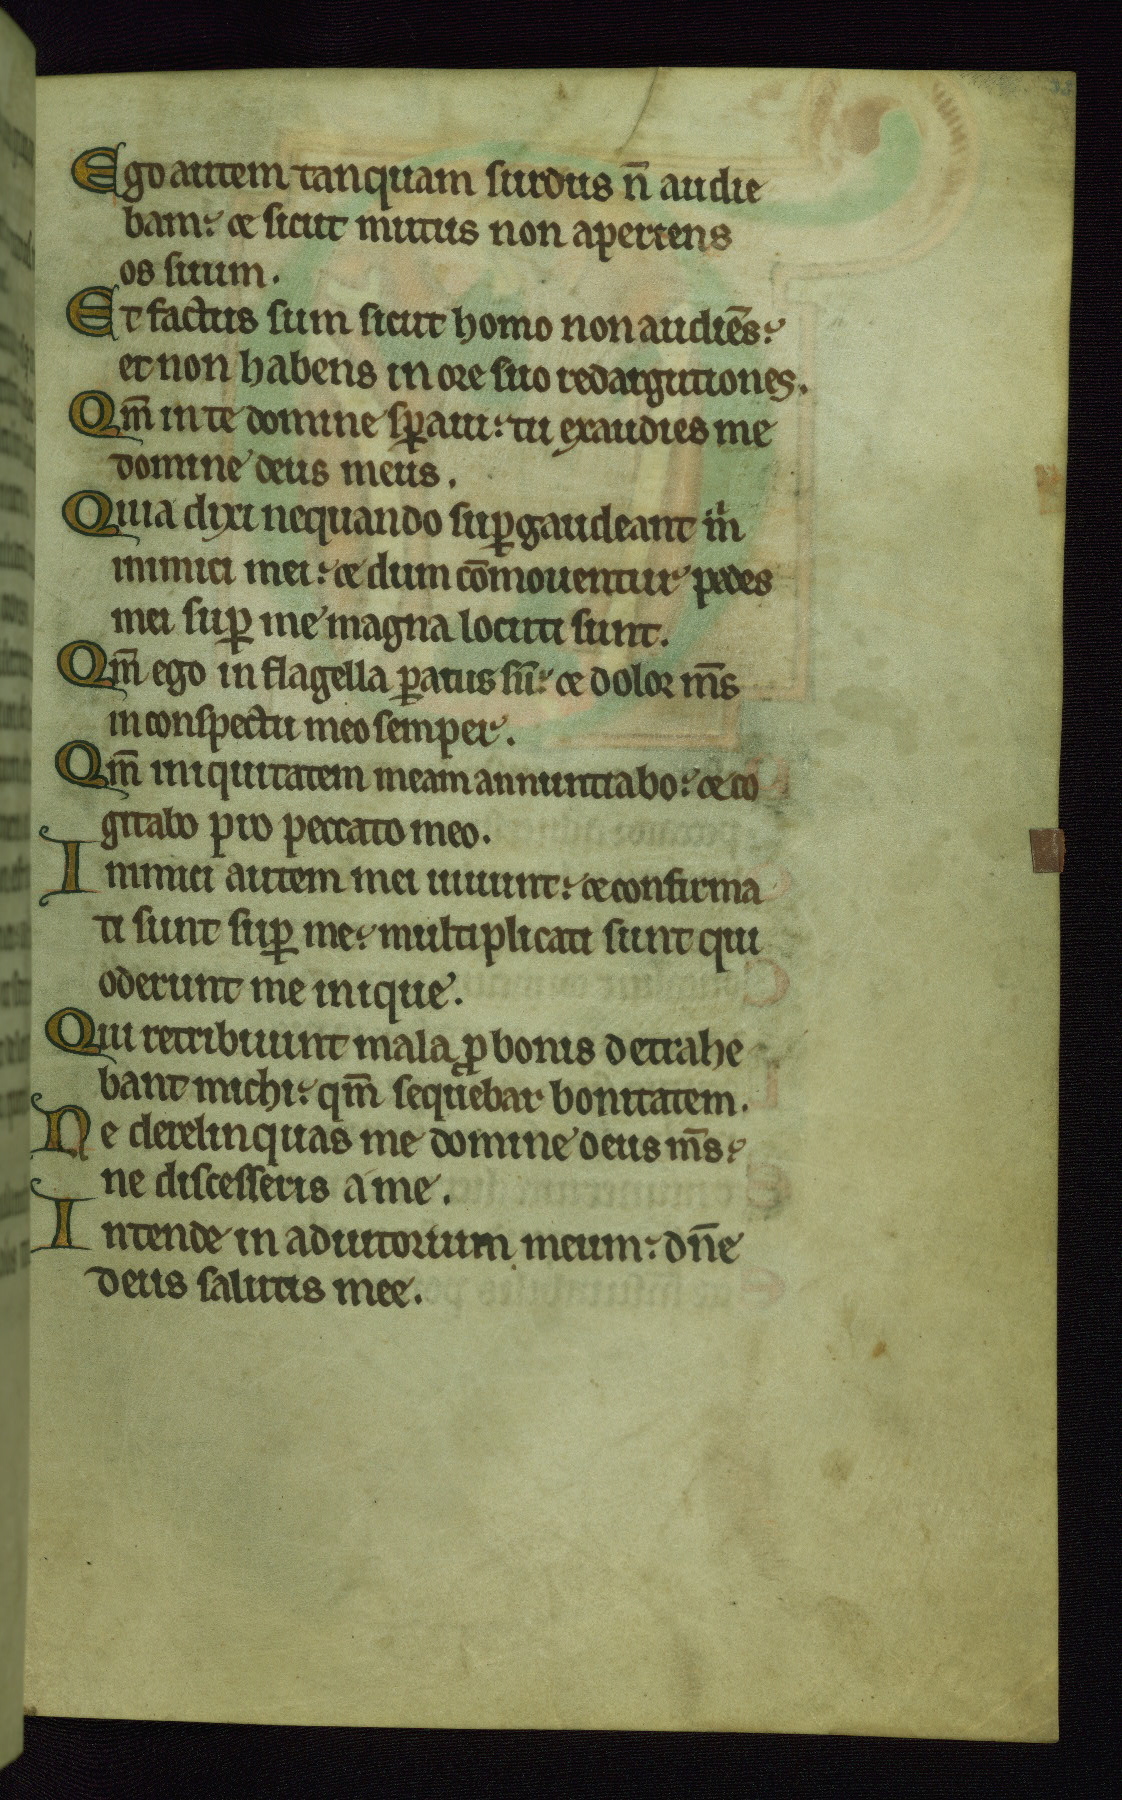 Ego autem tanquam surdus n̄ audie
bam: ⁊ sicut mutus non aperiens
os suum.
Et factus sum sicut homo non audiēs:
et non habens in ore suo redargutiones.
Qm̄ in te domine sꝑaui: tu exaudies me
domine deus meus.
Quia dixi nequando suꝑgaudeant m̄
inimici mei: ⁊ dum cōmouentur pedes
mei suꝑ me magna locuti sunt.
Qm̄ ego in flagella ꝑatus sū: ⁊ dolor m̄s
in conspectu meo semper.
Qm̄ iniquitatem meam annuntiabo: ⁊ co
gitabo pro peccato meo.
Inimici autem mei uiuunt: ⁊ confirma
ti sunt suꝑ me: multiplicati sunt qui
oderunt me inique.
Qui retribuunt mala ꝓ bonis detrahe
bant michi: qm̄ sequebar bonitatem.
Ne derelinquas me domine deus m̄s:
ne discesseris a me.
Intende in adiutorium meum: dn̄e
deus salutis mee.